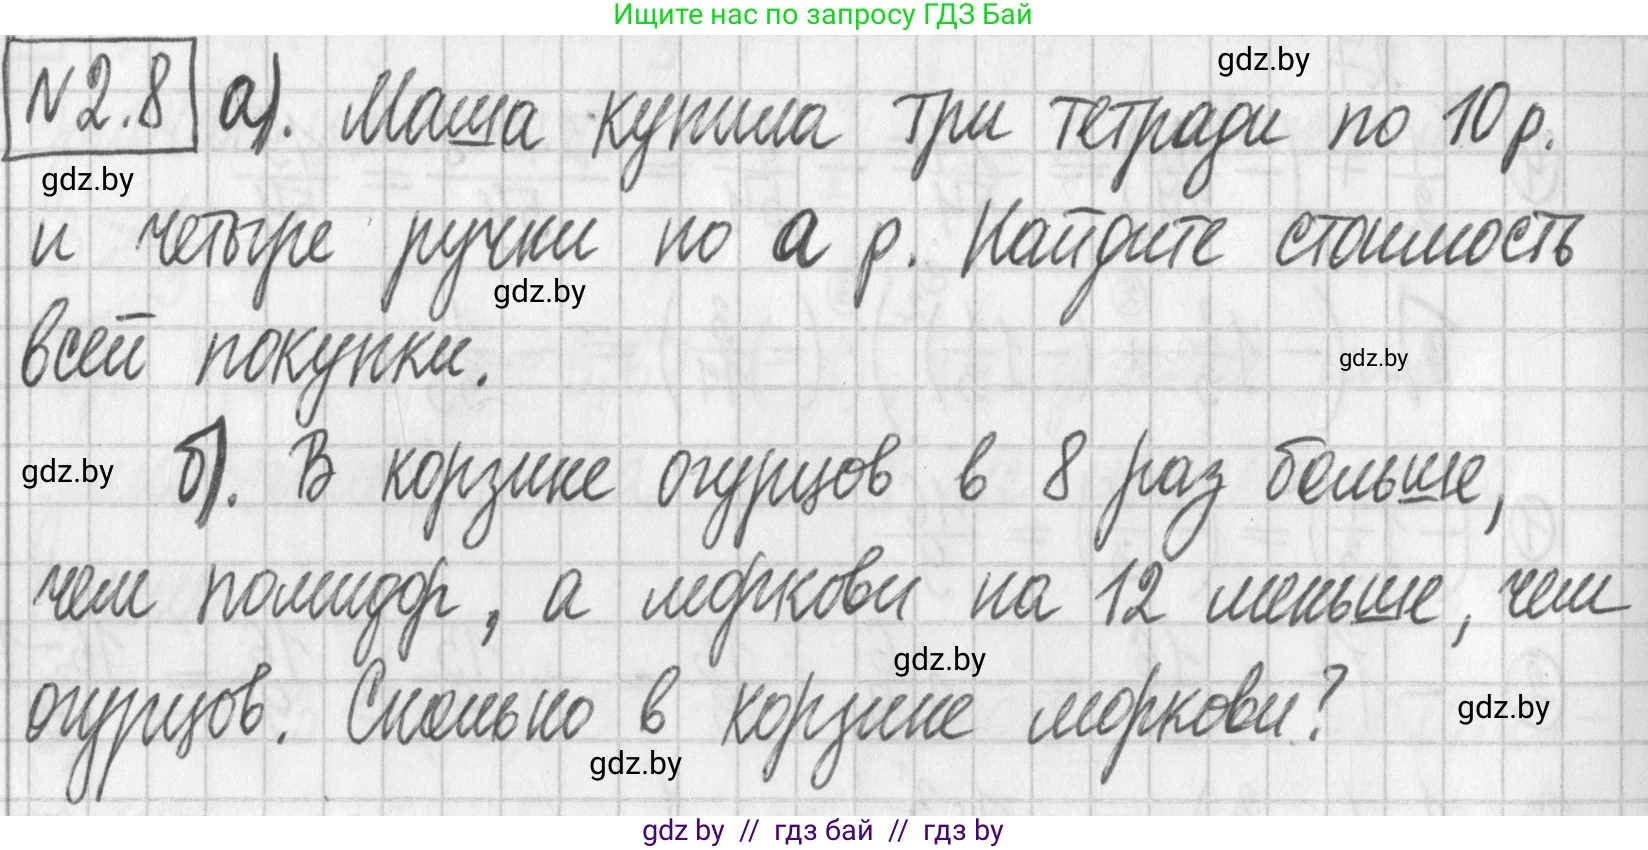 Ищите нас по запросу ГДЗ Бай
gdz.by
№2.8 а). Маша купила три тетради по 10 р.
gdz.by
и четыре ручки по а р. Найдите стоимость
gdz.by
всей покупки.
gdz.by
gdz.by
б). В корзине огурцов в 8 раз больше,
чем помидор, а моркови на 12 меньше, чем
gdz.by
огурцов. Сколько в корзине моркови?
gdz.by
gdz.by
gdz by // гдз бай // гдз by